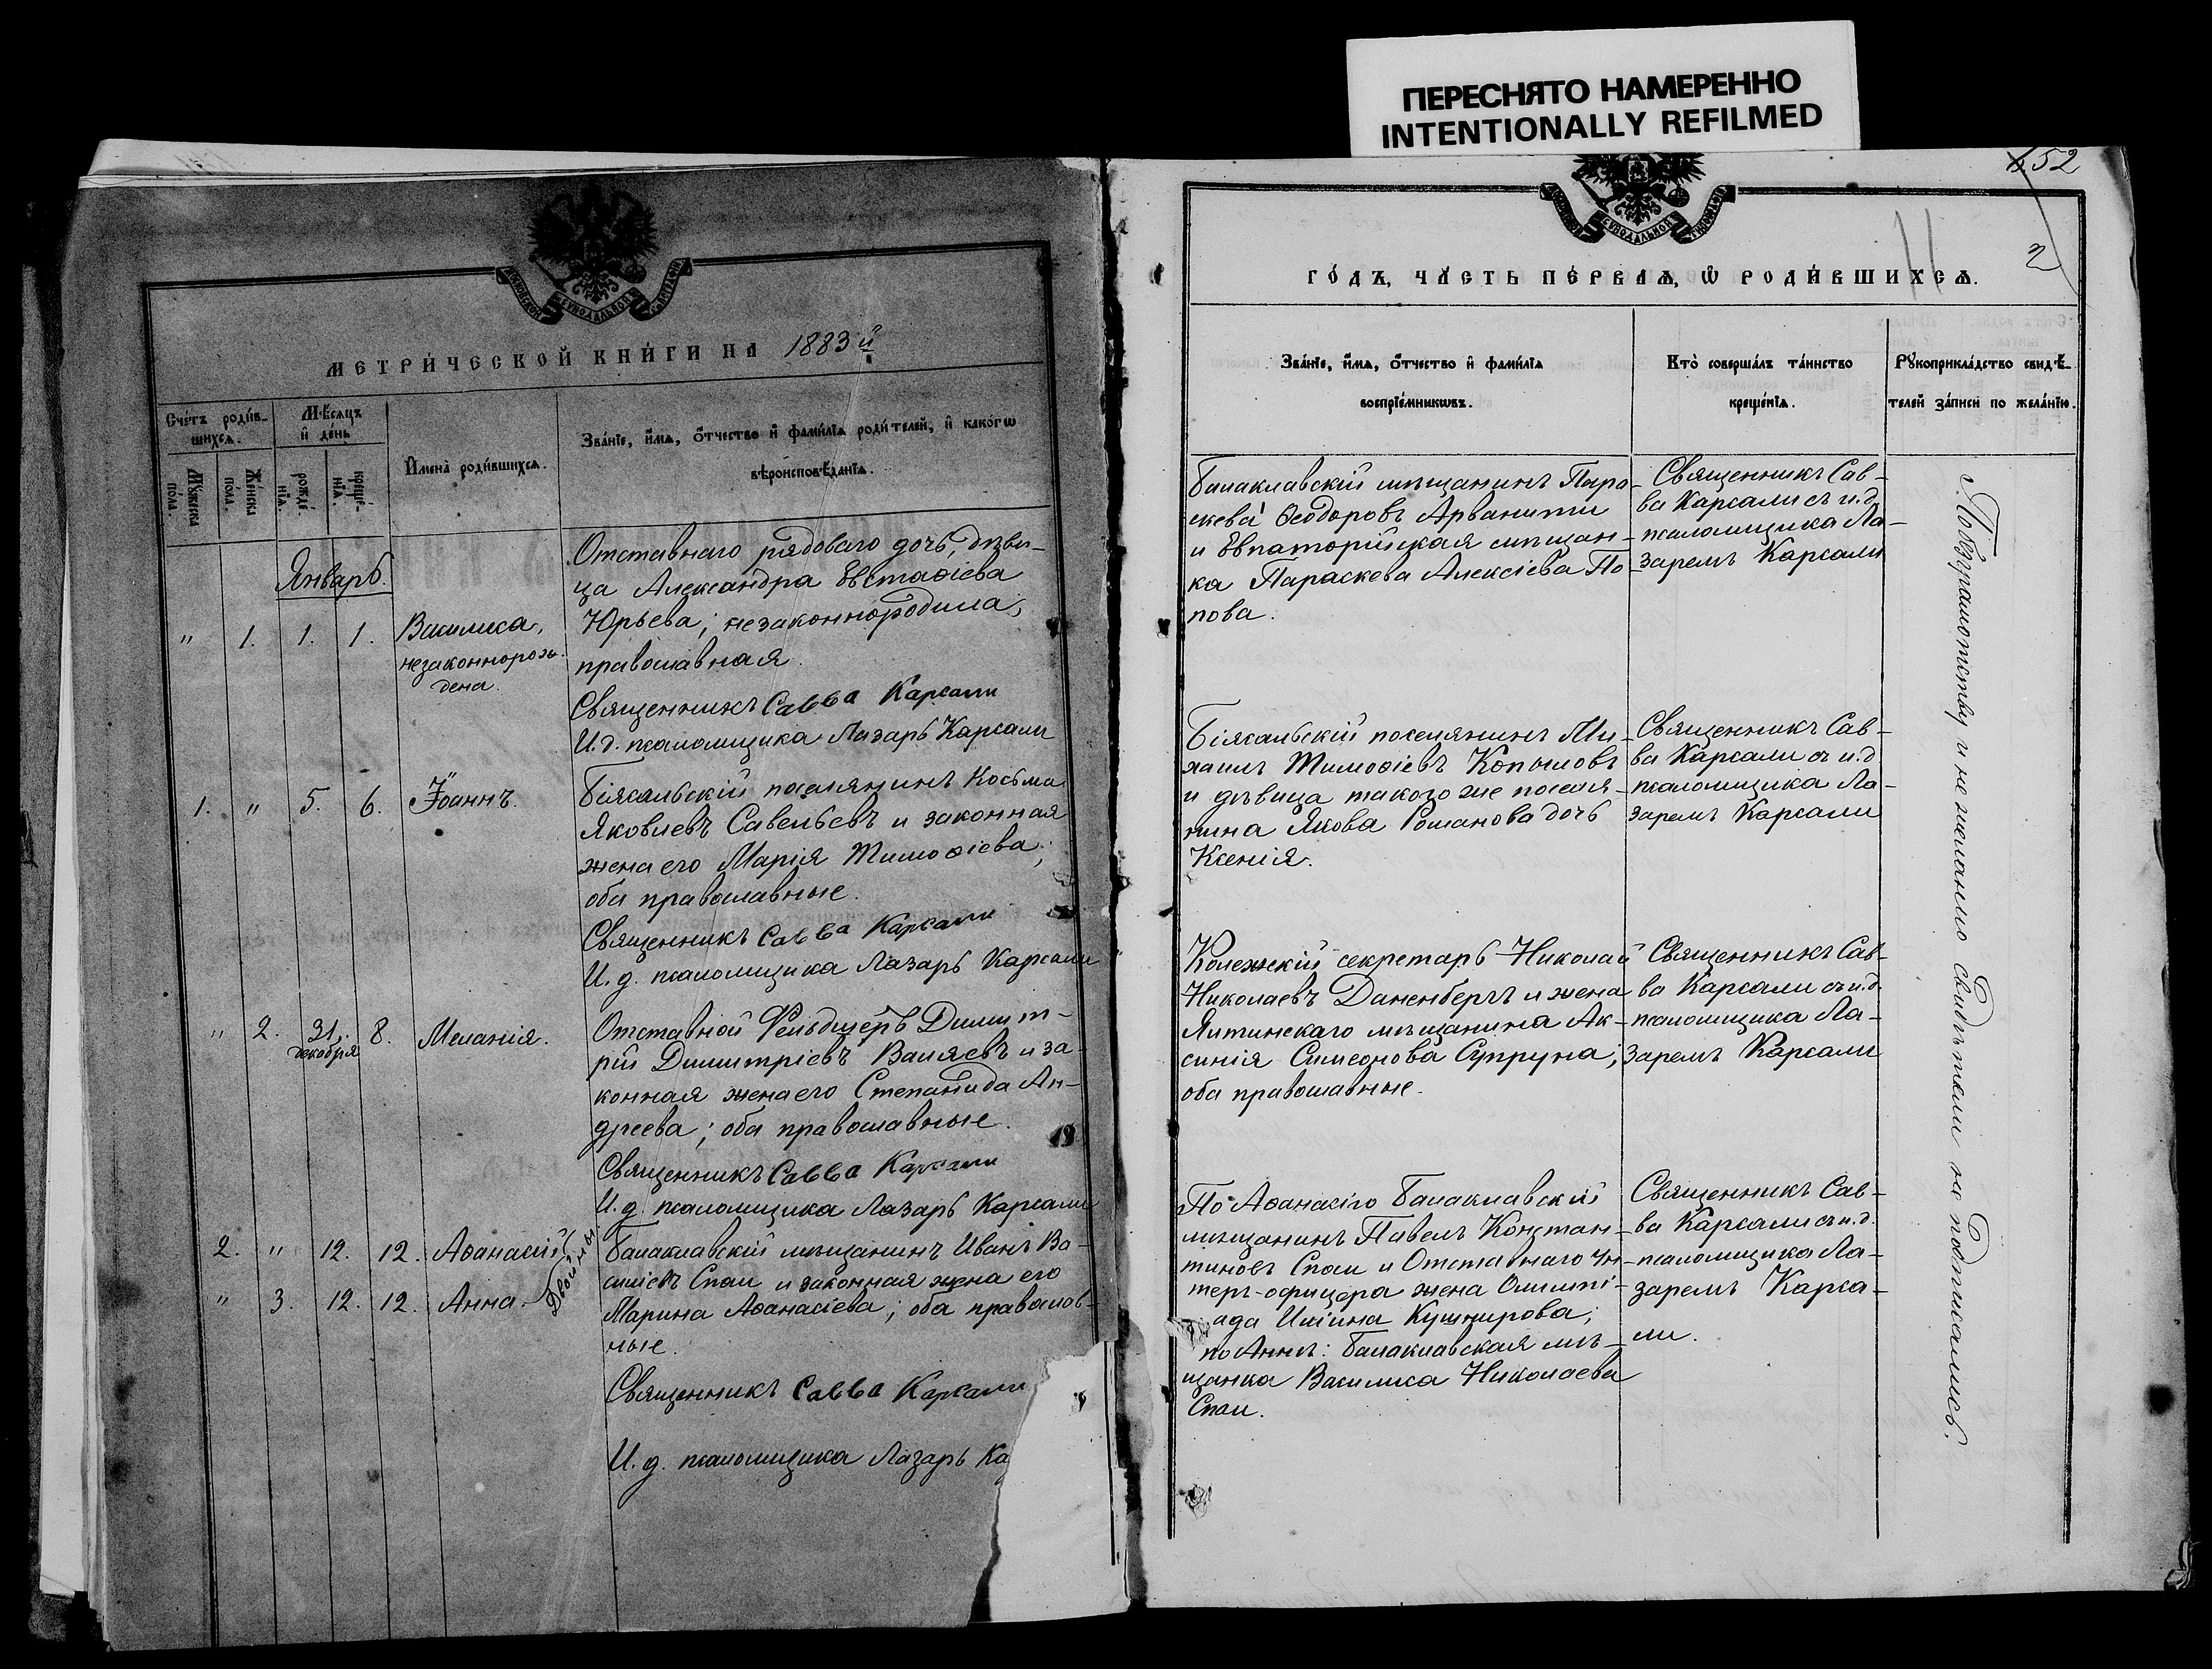 ПЕРЕСНЯТО НАМЕРЕННО
INTENTIONALLY REFILMED
МЕТРИ́ЧЕСКОЙ КНИ́ГИ НА 1883й
Сче́тъ роди́в-
шихсѧ.
Мѣ́сѧцъ
и҆ де́нь
Мꙋ́жеска
по́ла.
Же́нска
по́ла.
рожде́-
нїѧ.
креще́-
нїѧ.
И҆мена̀ роди́вшихсѧ.
Зва́нїе, и҆́мѧ, ѻ҆́тчество и҆ фами́лїѧ роди́телей, и҆ како́гѡ
вѣроисповѣ́данїѧ.
Январь.
" 1. 1. 1.
Василиса,
незаконнорож-
дена.
Отставнаго рядоваго дочь, дѣви-
ца Александра Евстаѳіева
Юрьева; незаконнородила;
православная.
Священникъ Савва Карсали
И.д. псаломщика Лазарь Карсали
1. " 5. 6. Іоаннъ.
Біясальскій поселянинъ Косьма
Яковлевъ Савельевъ и законная
жена его Марія Тимоѳіева;
оба православные.
Священникъ Савва Карсали
И.д. псаломщика Лазарь Карсали
" 2. 31 декабря 8. Меланія.
Отставной Фельдшеръ Димит-
рій Димитріевъ Валяевъ и за-
конная жена его Степанида Ан-
дреева; оба православные.
Священникъ Савва Карсали
И.д. псаломщика Лазарь Карсали
2. " 12. 12. Аѳанасій
" 3. 12. 12. Анна.
Двойни
Балаклавскій мѣщанинъ Иванъ Ва-
силіевъ Спаи и законная жена его
Марина Аѳанасіева; оба православ-
ные.
Священникъ Савва Карсали
И.д. псаломщика Лазарь Ка
52
2
ГО́ДЪ, ЧА́СТЬ ПЕ́РВАѦ, Ѽ РОДИ́ВШИХСѦ.
Зва́нїе, и҆́мѧ, ѻ҆́тчество и҆ фами́лїѧ
воспрїе́мникѡвъ.
Кто̀ соверша́лъ та́инство
креще́нїѧ.
Рꙋкоприкла́дство свидѣ́-
телей за́писи по жела́нїю.
Балаклавскій мѣщанинъ Пара-
скева Ѳеодоровъ Арванити
и Евпаторійская мѣщан-
ка Параскева Алексіева По-
пова.
Священникъ Сав-
ва Карсали съ и.д.
псаломщика Ла-
заремъ Карсали
Біясальскій поселянинъ Ми-
хаилъ Тимоѳіевъ Копыловъ
и дѣвица такого же поселя-
нина Якова Романова дочь
Ксенія.
Священникъ Сав-
ва Карсали съ и.д.
псаломщика Ла-
заремъ Карсали
Колежскій секретарь Николай
Николаевъ Даненбергъ и жена
Ялтинскаго мѣщанина Ак-
синія Симеонова Супруна;
оба православные.
Священникъ Сав-
ва Карсали съ и.д.
псаломщика Ла-
заремъ Карсали
По Аѳанасію Балаклавскій
мѣщанинъ Павелъ Констан-
тиновъ Спаи и Отставнаго Ун-
теръ-офицера жена Олимпі-
ада Ильина Кушнирова;
по Аннѣ: Балаклавская мѣ-
щанка Василиса Николаева
Спаи.
Священникъ Сав-
ва Карсали съ и.д.
псаломщика Ла-
заремъ Карса-
ли.
По безграмотству и не желанію свидѣтели не подписались.